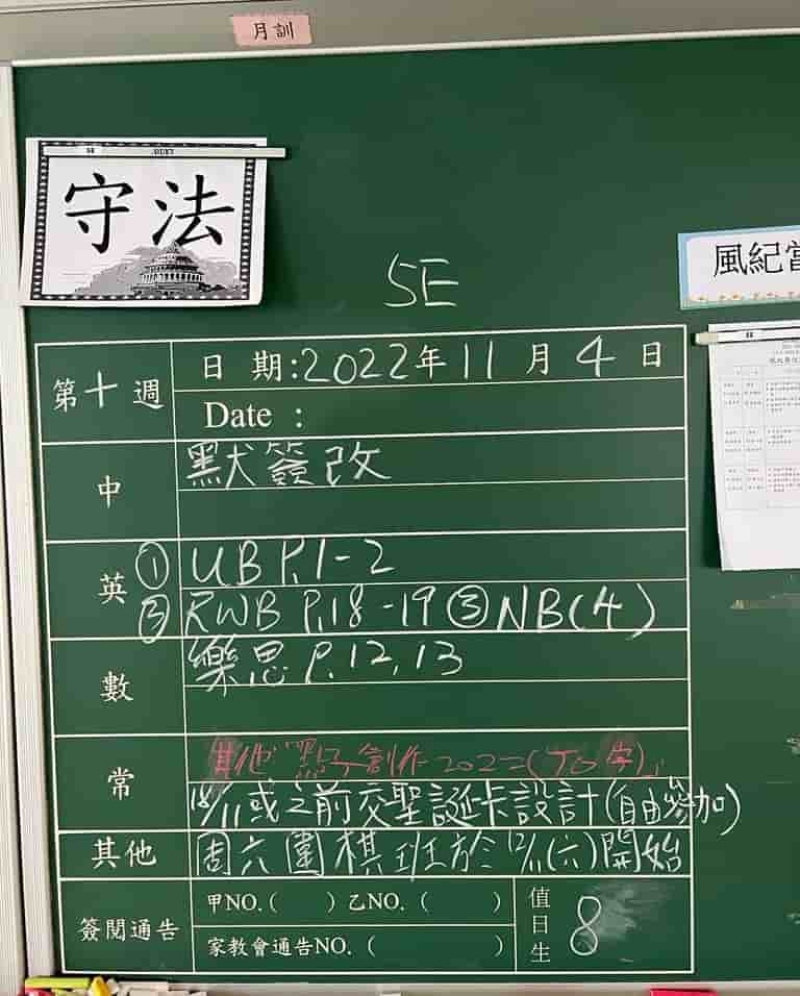 月訓
守法
5E
風紀
第十週
日 期:2022年11月4日
Date :
中
默簽改
英
① UB P.1-2
② RWB P.18-19 ③ NB(4)
數
樂思 P.12,13
常
其他
創作2022
18/11或之前交聖誕卡設計(自由參加)
其他
周六圍棋班於12/11(六)開始
簽閱通告
甲NO.( ) 乙NO.( )
家教會通告NO.( )
值日生
8